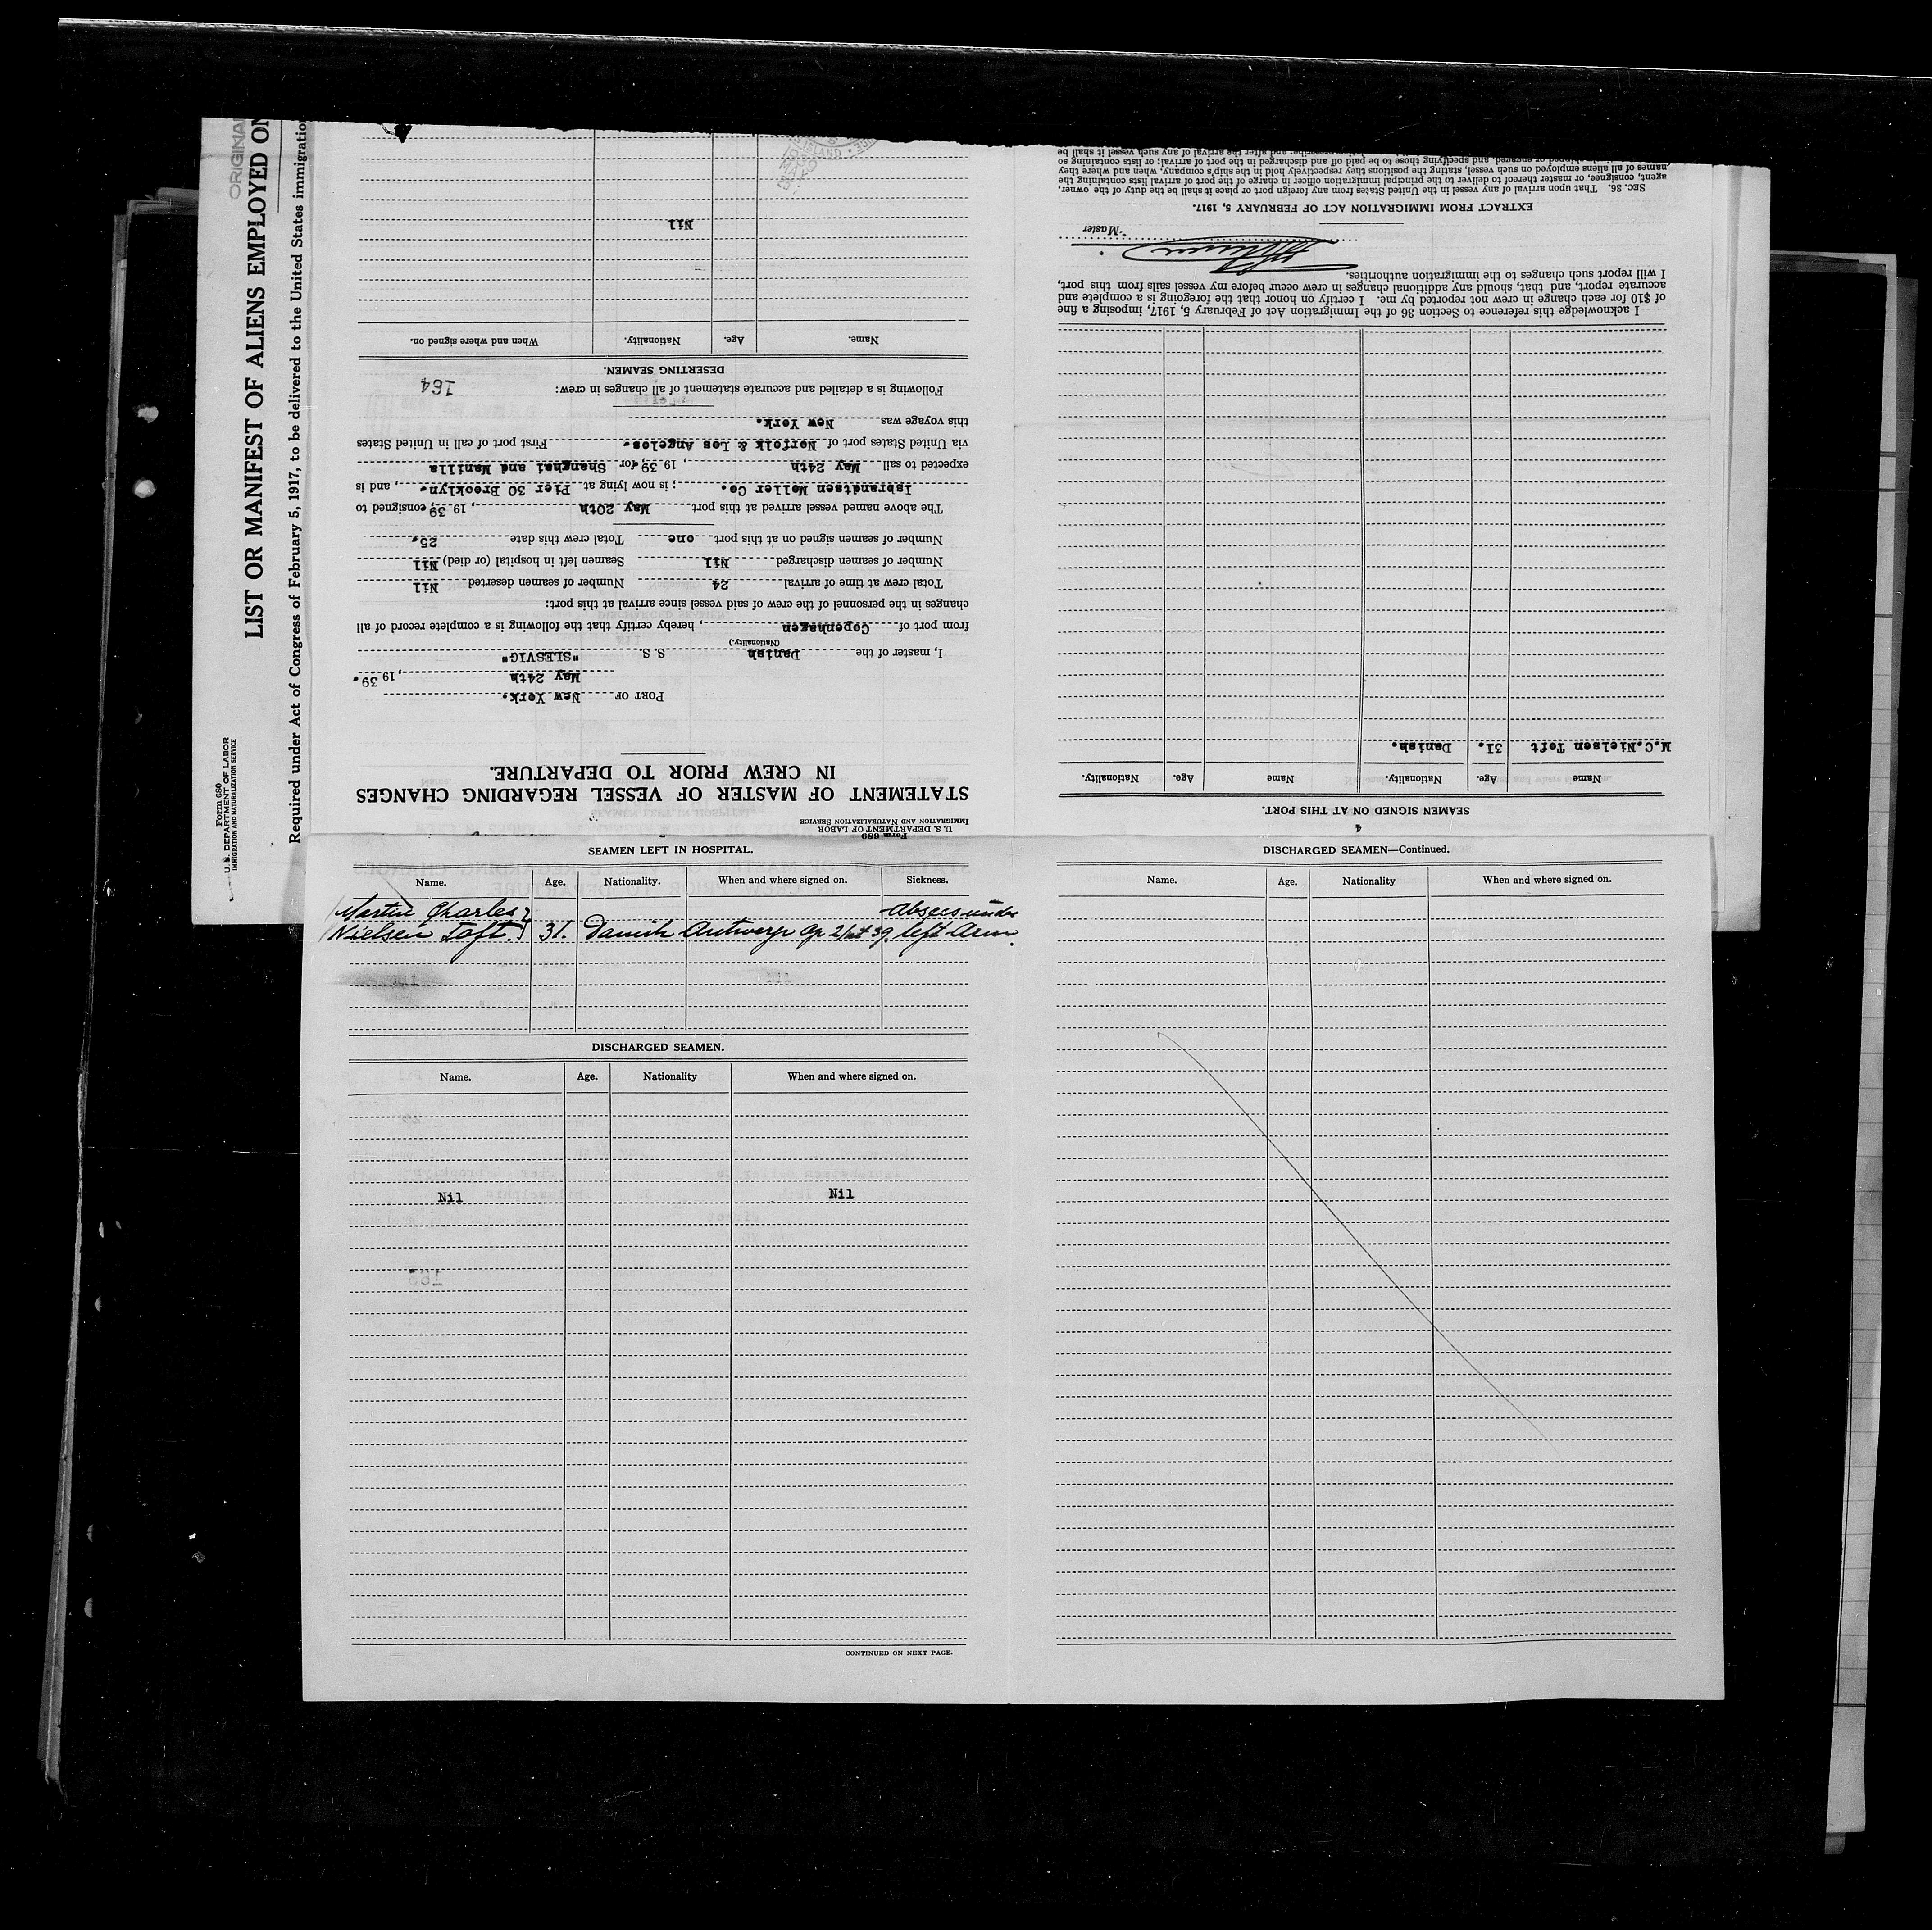 ORIGINAL
LIST OR MANIFEST OF ALIENS EMPLOYED ON
Required under Act of Congress of February 5, 1917, to be delivered to the United States immigration
Form 680
U. S. DEPARTMENT OF LABOR
IMMIGRATION AND NATURALIZATION SERVICE
Form 689
U. S. DEPARTMENT OF LABOR
IMMIGRATION AND NATURALIZATION SERVICE
STATEMENT OF MASTER OF VESSEL REGARDING CHANGES
IN CREW PRIOR TO DEPARTURE.
PORT OF New York.
May 24th, 19 39.
I, master of the Danish S. S. "SLESVIG"
(Nationality.)
from port of Copenhagen, hereby certify that the following is a complete record of all
changes in the personnel of the crew of said vessel since arrival at this port:
Total crew at time of arrival 24 Number of seamen deserted Nil
Number of seamen discharged Nil Seamen left in hospital (or died) Nil
Number of seamen signed on at this port one Total crew this date 25.
The above named vessel arrived at this port May 20th, 19 39, consigned to
Isbrandtsen Moller Co.; is now lying at Pier 30 Brooklyn., and is
expected to sail May 24th, 19 39. for Shanghai and Manilla
via United States port of Norfolk & Los Angelos. First port of call in United States
this voyage was New York.
Following is a detailed and accurate statement of all changes in crew: 164
DESERTING SEAMEN.
Name. Age. Nationality. When and where signed on.
Nil
4
SEAMEN SIGNED ON AT THIS PORT.
Name Age. Nationality. Name Age. Nationality.
M.C.Nielsen Toft 31. Danish.
I acknowledge this reference to Section 36 of the Immigration Act of February 5, 1917, imposing a fine
of $10 for each change in crew not reported by me. I certify on honor that the foregoing is a complete and
accurate report, and that, should any additional changes in crew occur before my vessel sails from this port,
I will report such changes to the immigration authorities.
Master
EXTRACT FROM IMMIGRATION ACT OF FEBRUARY 5, 1917.
SEC. 36. That upon arrival of any vessel in the United States from any foreign port or place it shall be the duty of the owner,
agent, consignee, or master thereof to deliver to the principal immigration officer in charge of the port of arrival lists containing the
names of all aliens employed on such vessel, stating the positions they respectively hold in the ship's company, when and where they
were respectively shipped or engaged, and specifying those to be paid off and discharged in the port of arrival; or lists containing so
prescribe; and after the arrival of any such vessel it shall be
SEAMEN LEFT IN HOSPITAL.
Name. Age. Nationality. When and where signed on. Sickness.
Martin Charles Absces under
Nielsen Toft. 31. Danish Antwerp Ap 21st 39. left Arm.
DISCHARGED SEAMEN.
Name. Age. Nationality When and where signed on.
Nil Nil
CONTINUED ON NEXT PAGE.
DISCHARGED SEAMEN—Continued.
Name. Age. Nationality When and where signed on.